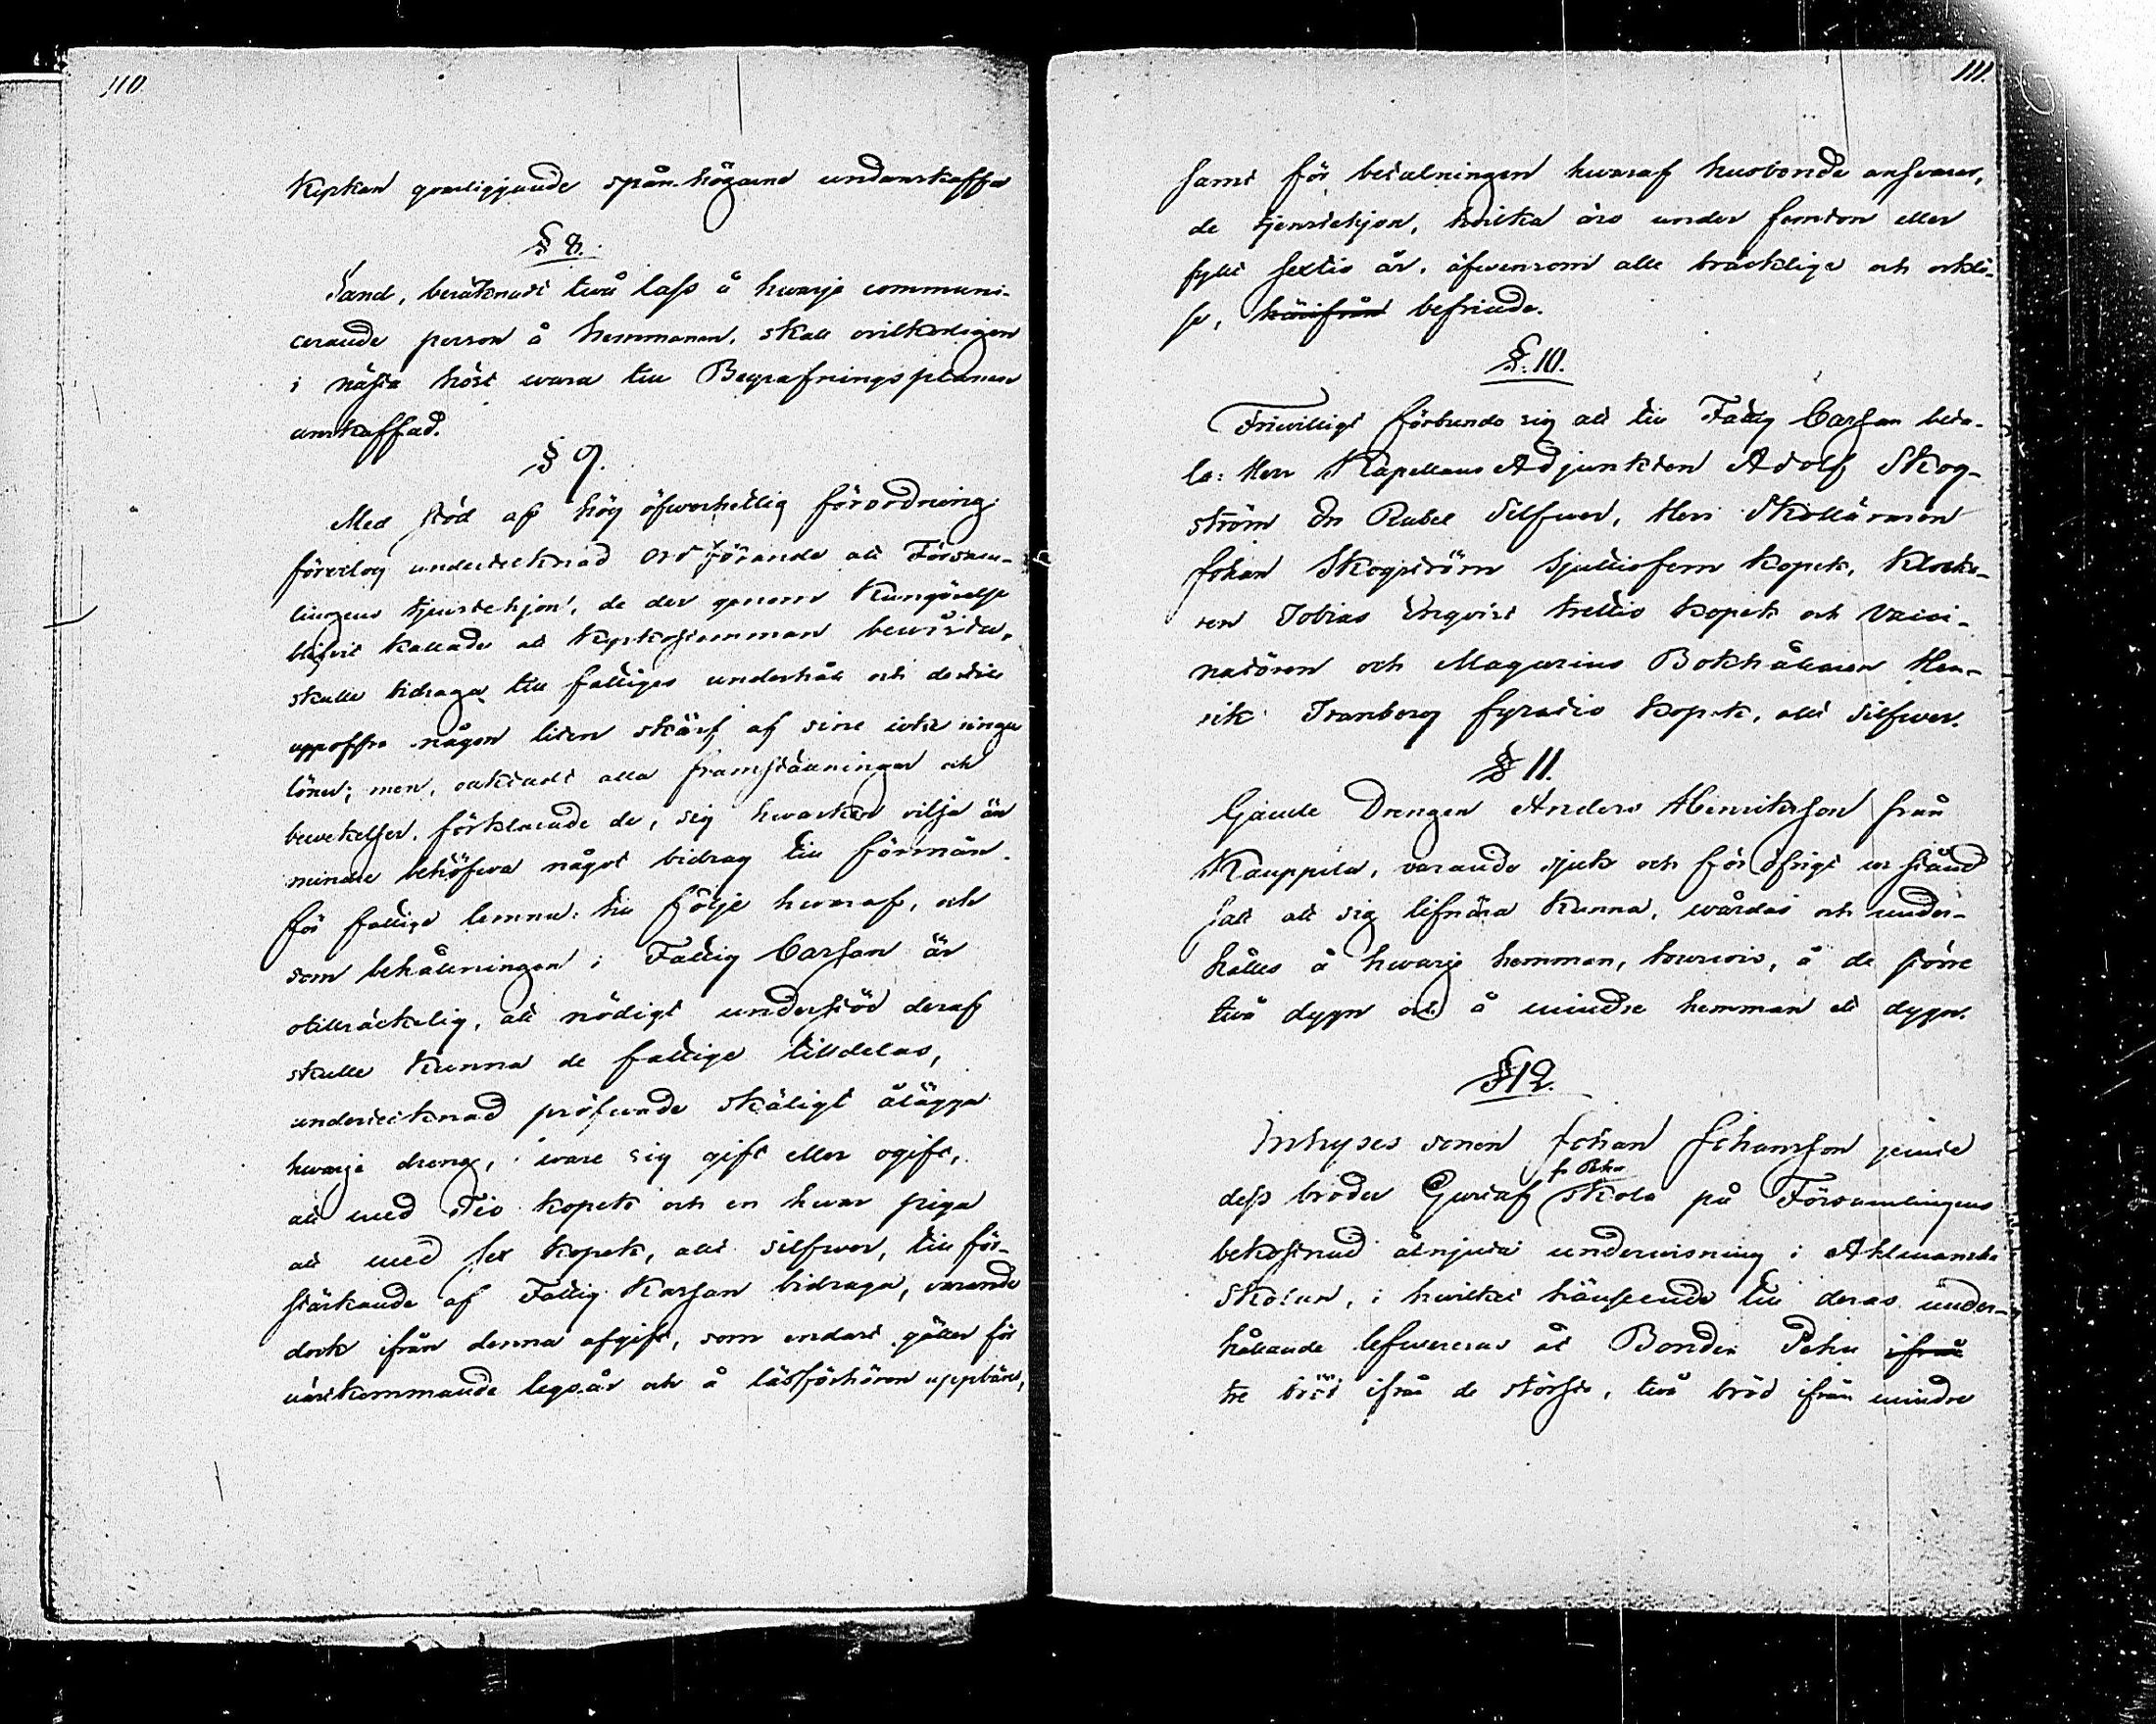 110.
Kyrkan qvarliggande spån högarne undanskaffa
§ 8.
Sand, beräknadt två lass å hwarje communi-
cerande person å hemmanen, skall ovilkorligen
i nästa höst wara till Begrafningsplanen
anskaffad.
§ 9.
Med stöd af hög öfwerhetlig förordning
föreslog undertecknad Ordförande att Försam-
lingens tjenstehjon, de der genom Kungörelse
blifvit kallade att Kyrkostämman bewista,
skulle bidraga till fattiges underhåll och dertill
uppoffra någon liten skärf af sine icke ringa
löner; men, oaktadt alla framställningar och
bewekelser, förklarade de, sig hwarken vilja än
mindre behöfwa något bidrag till förmån
för fattige lemna: till följe hwaraf, och
som behållningen i Fattig Cassan är
otillräckelig, att nödigt understöd deraf
skulle kunna de fattige tilldelas,
undertecknad pröfwade skäligt ålägga
hwarje dreng, ware sig gift eller ogift,
att med Tio kopek och en hwar piga
att med sex kopek, allt silfwer, till för-
stärkande af Fattig Kassan bidraga, varande
dock ifrån denna afgift, som endast gäller för
nästkommande legoår och å läsförhören uppbäres,
111.
samt för betalningen hwaraf husbonde answarar,
de tjenstehjon, hwilka äro under femton eller
fyllt sextio år, äfwensom alle bräcklige och orklö-
se, härifrån befriade.
§ 10.
Friwilligt förbundo sig att till Fattig Cassan beta-
la: Herr Kapellans Adjunkten Adolf Skog-
ström En Rubel Silfwer, Herr Skolläraren
Johan Skogström Sjuttiofem kopek, Klocka-
ren Tobias Enqvist trettio kopek och Vacci-
natören och Magasins Bokhållaren Hen-
rik Tranberg fyratio kopek, allt silfwer.
§ 11.
Gamle Drengen Anders Henriksson från
Kauppila, varande sjuk och för öfrigt ur stånd
satt att sig lifnära kunna, wårdas och under-
hålles å hwarje hemman, tourvis, å de större
två dygn och å mindre hemman ett dygn.
§ 12.
Inhyses sonen Johan Johansson jemte
dess broder Gustaf skola på Församlingens
bekostnad åtnjuta underwisning i Ahlmanska
Skolan, i hwilket hänseende till deras under-
hållande lefwereras åt Bonden Pehu ifrån
tre bröd ifrån de största, två bröd ifrån mindre